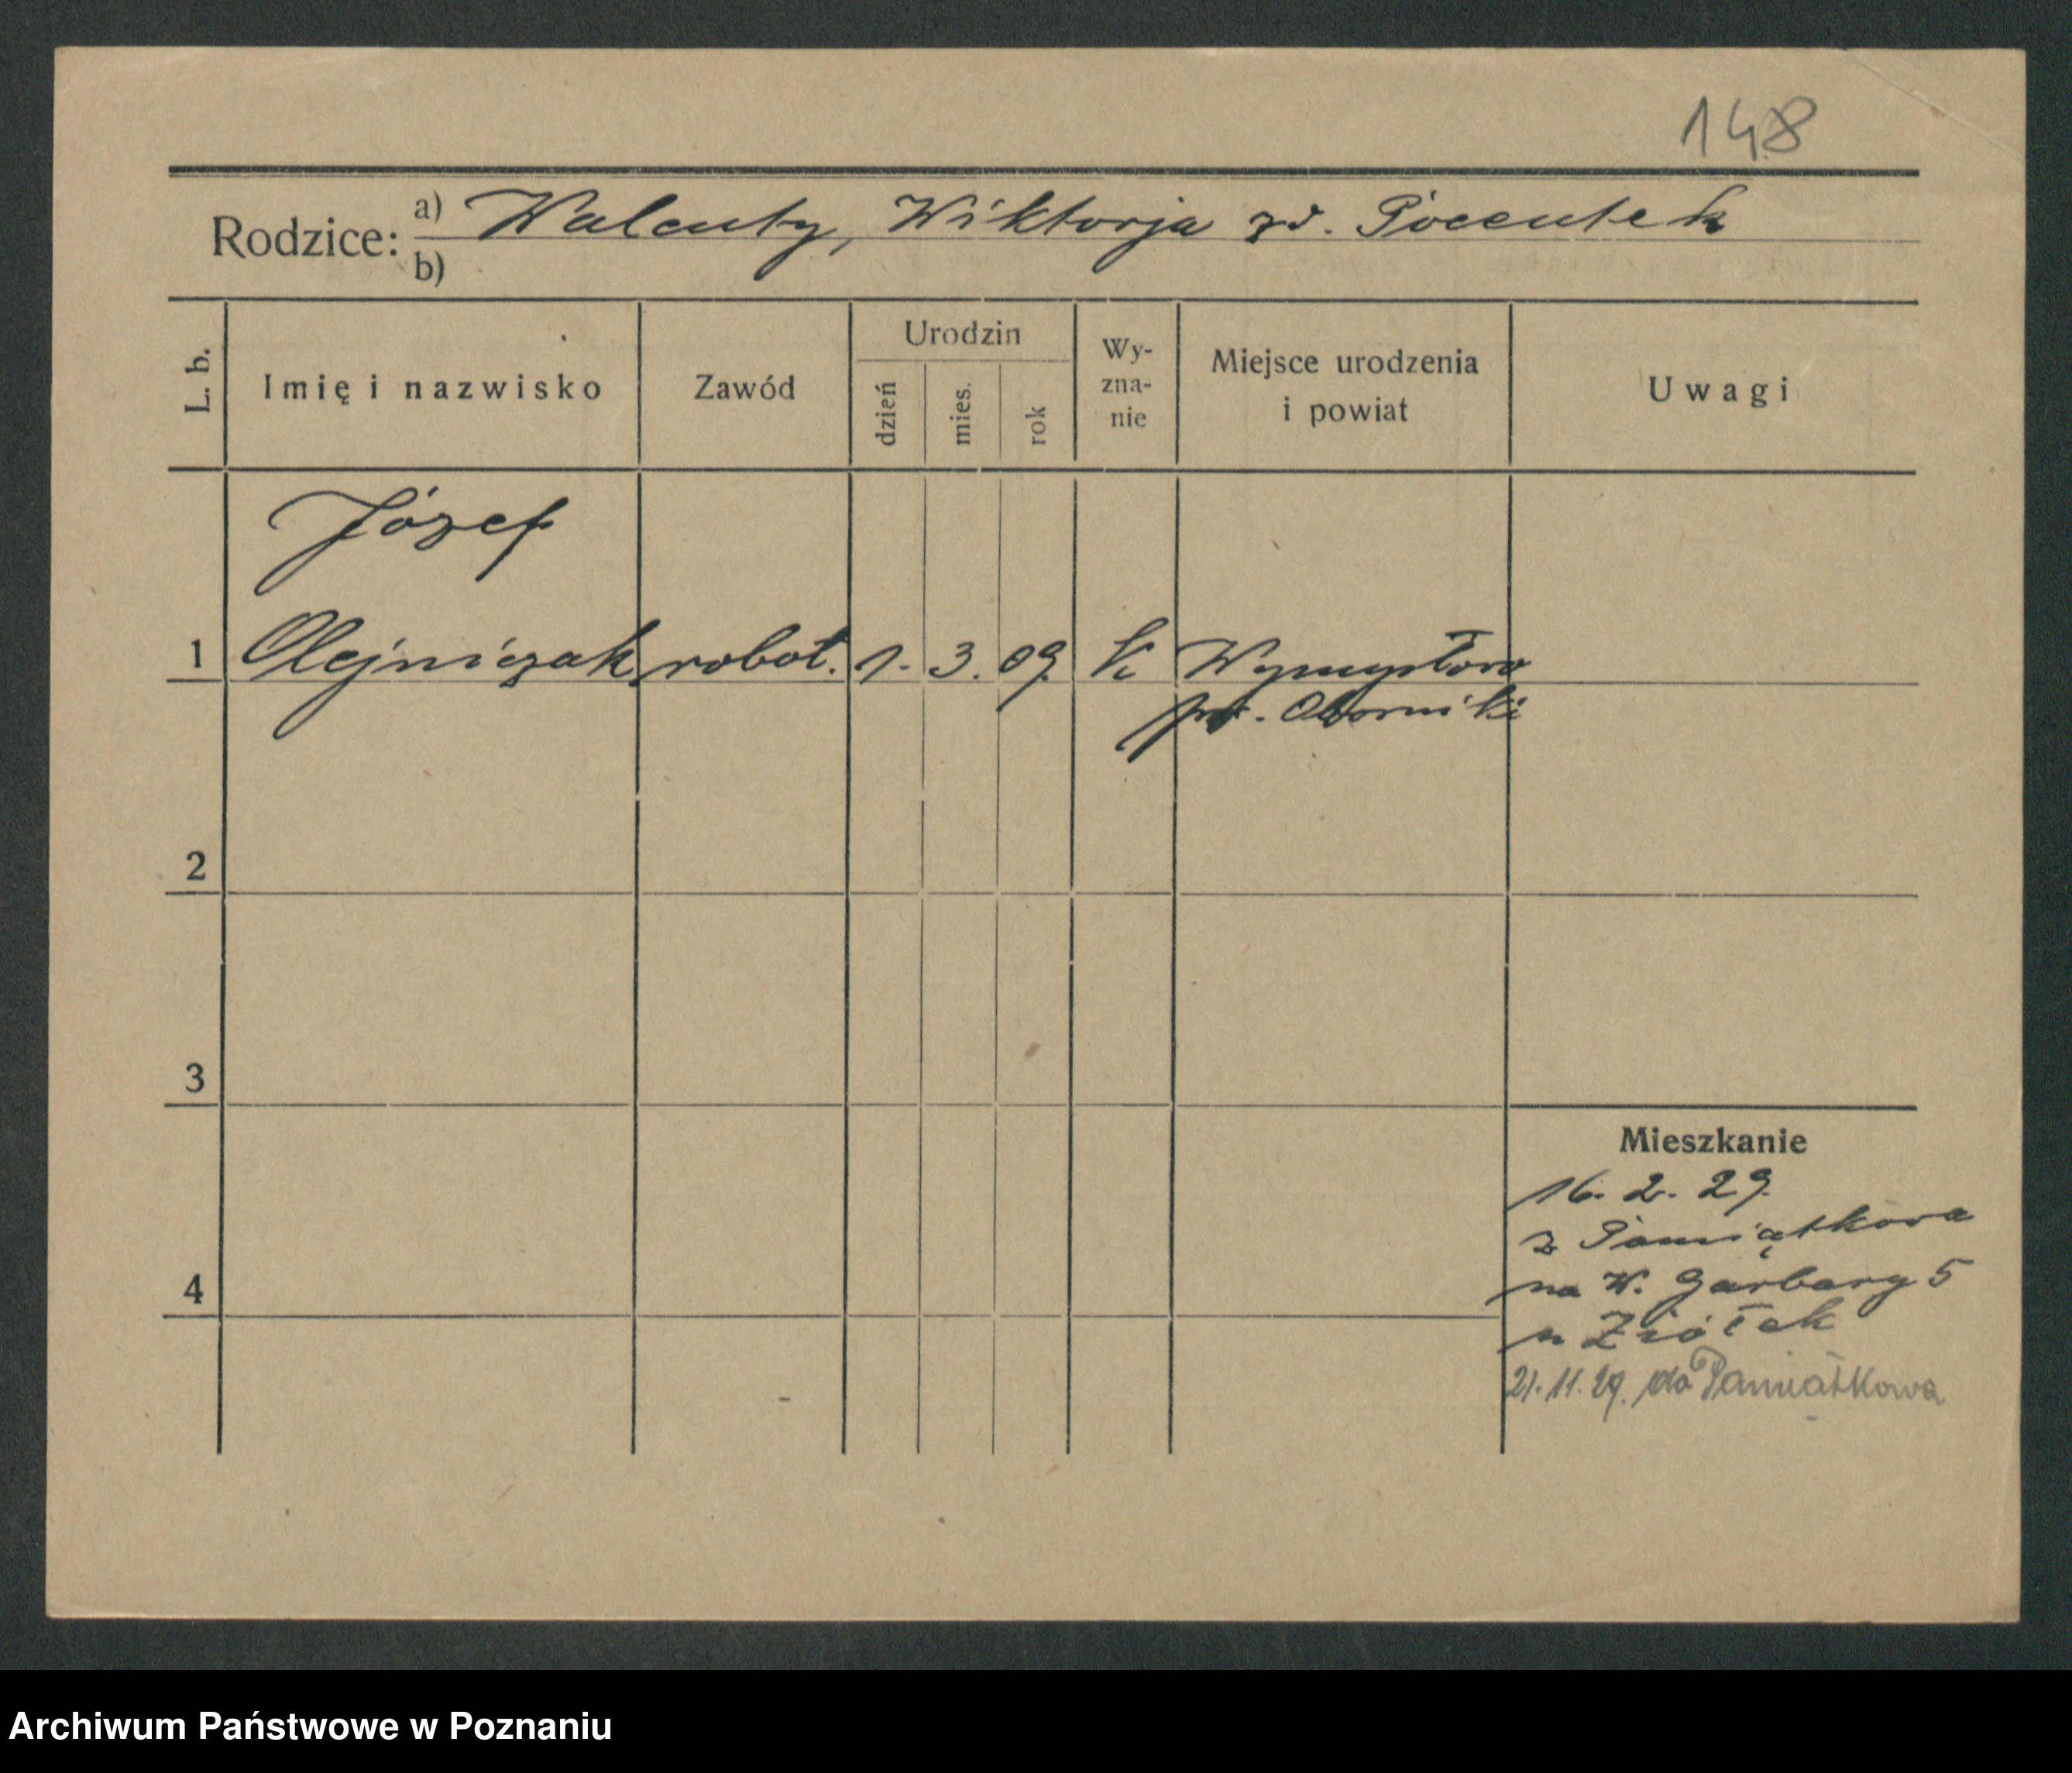 148
Rodzice: a) Walenty, Wiktorja zd. Pocentek
b)
L. b.
Imię i nazwisko
Zawód
Urodzin
dzień
mies.
rok
Wy-
zna-
nie
Miejsce urodzenia
i powiat
Uwagi
Józef
1 Olejniczak robot. 1. 3. 09. k Wymysłowo
pw. Oborniki
2
3
4
Mieszkanie
16. 2. 29.
z Pamiątkowa
na W. Garbary 5
u Ziółek
21. 11. 29. do Pamiątkowa
Archiwum Państwowe w Poznaniu